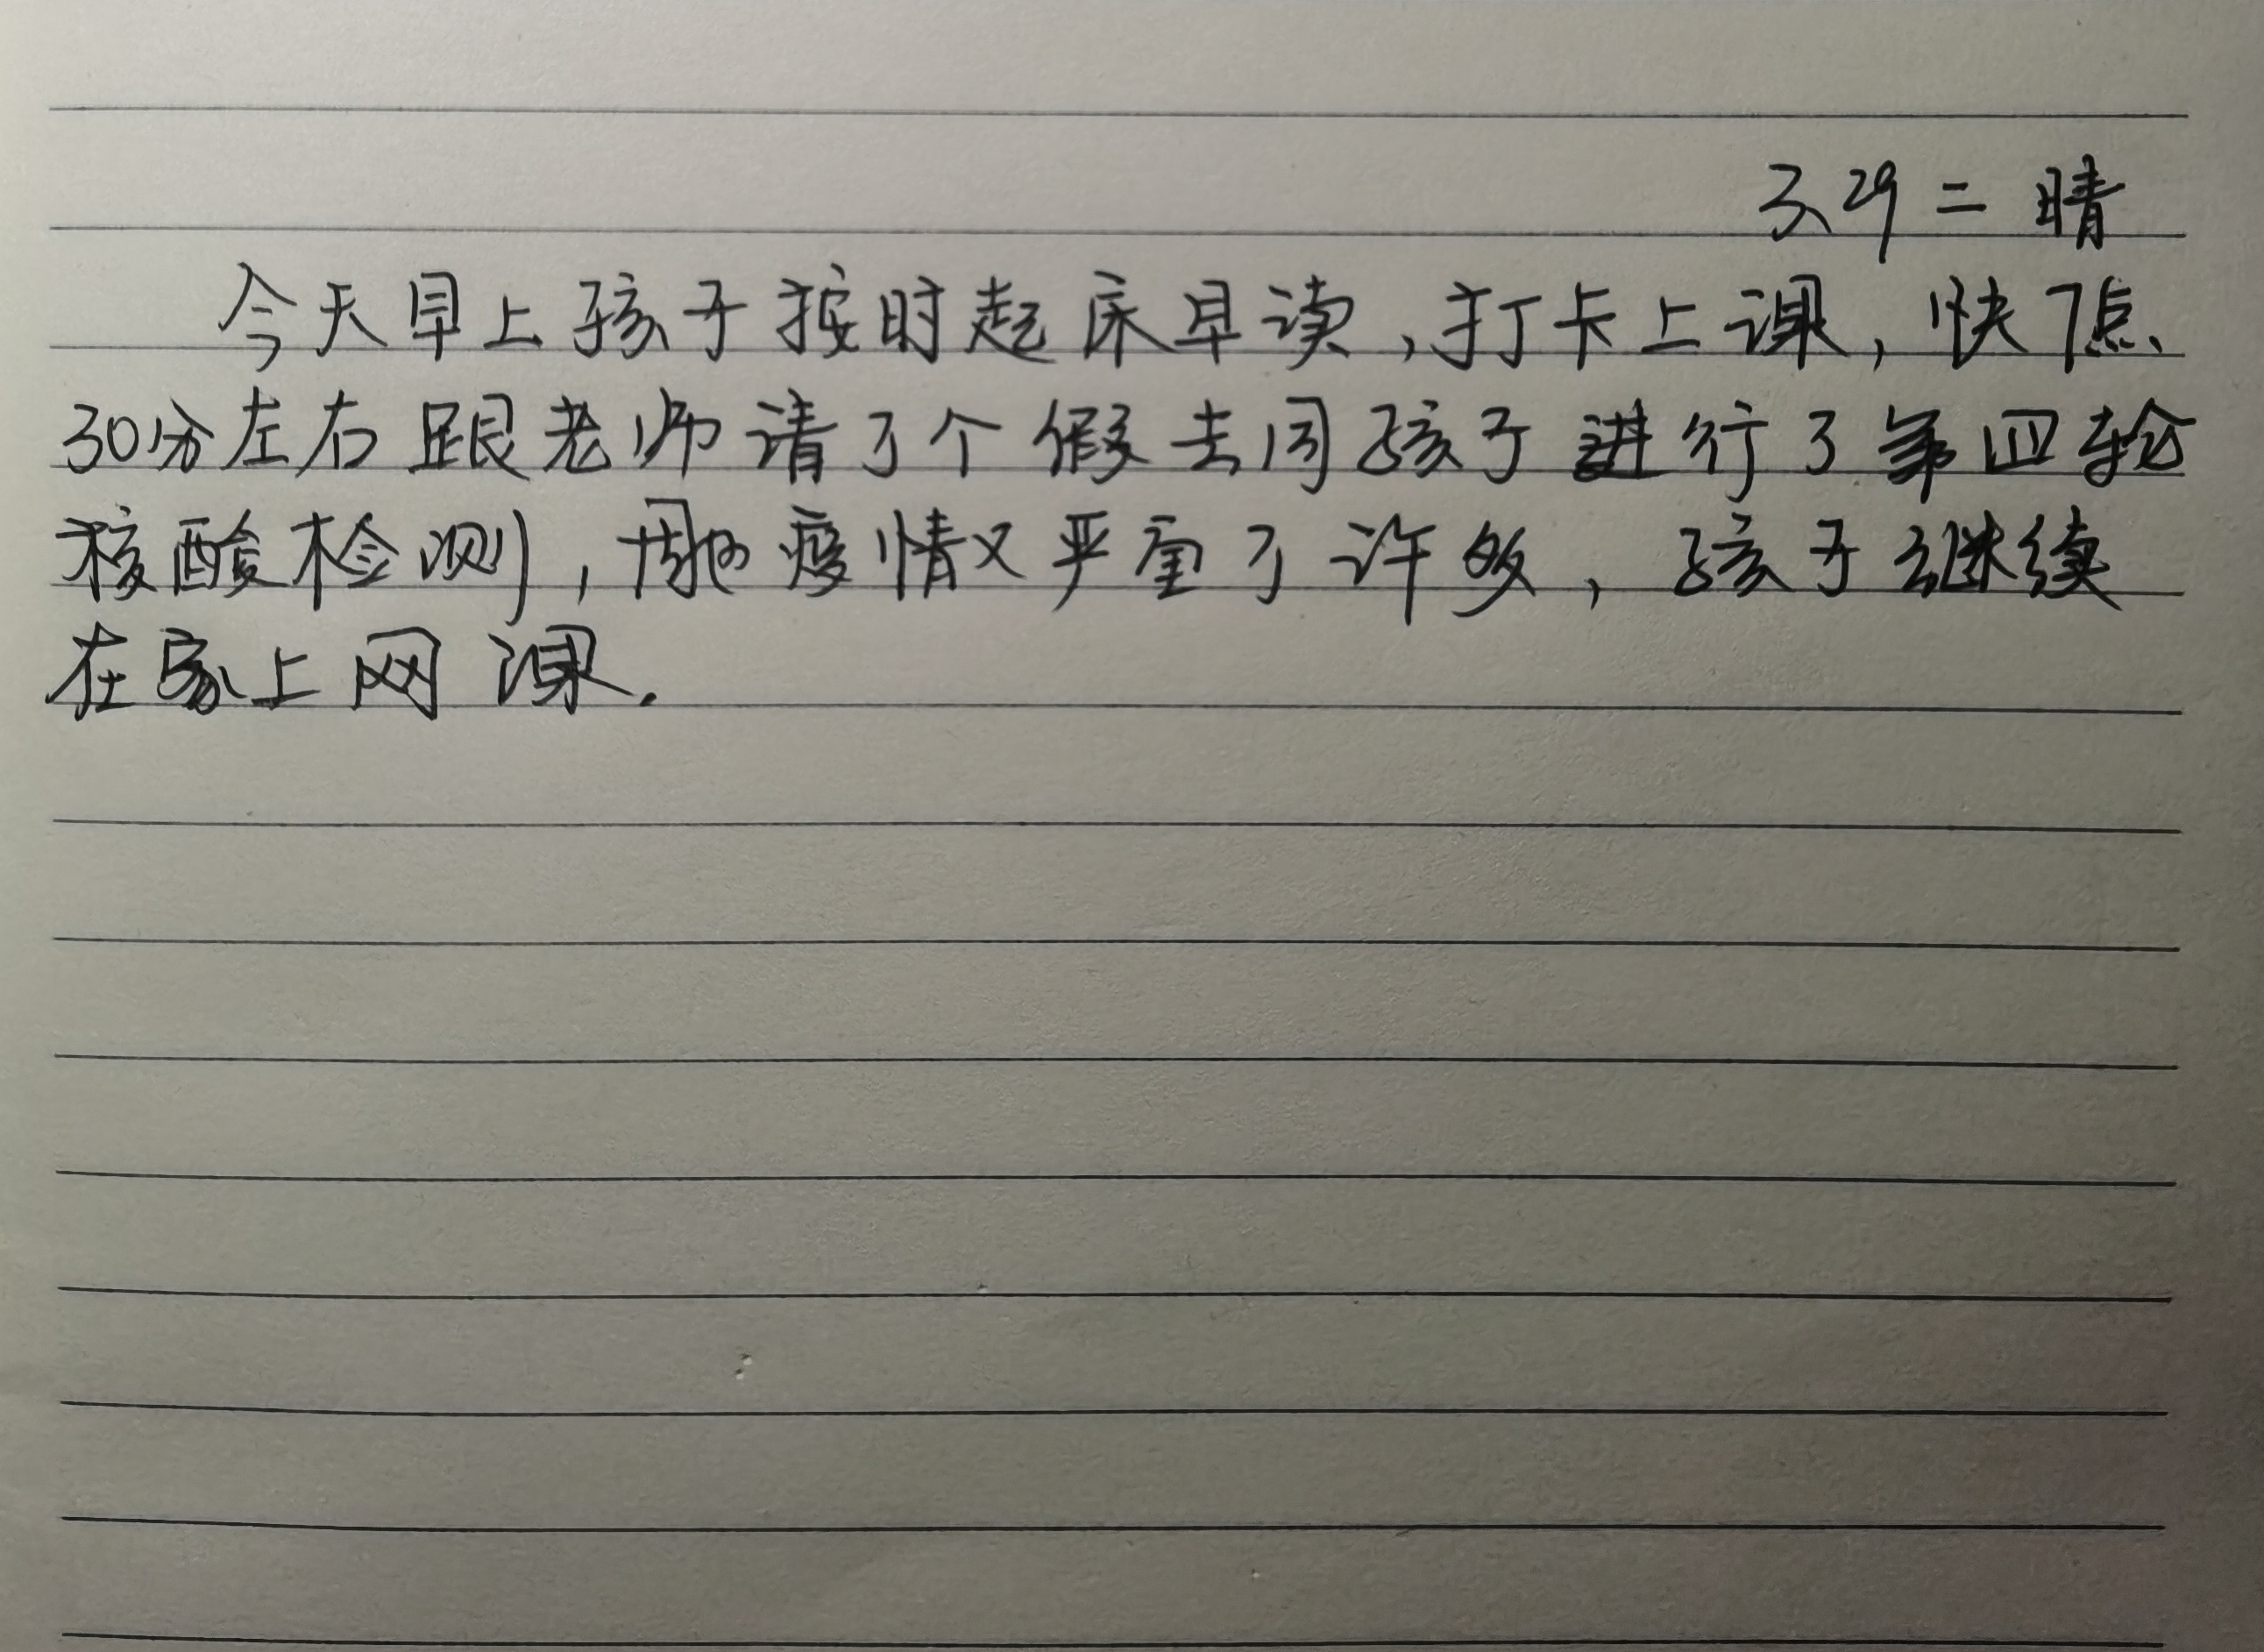 3.29 二 晴
今天早上孩子按时起床早读,打卡上课,快7点
30分左右跟老师请了个假去同孩子进行了第四轮
核酸检测,疫情又严重了许多,孩子继续
在家上网课.